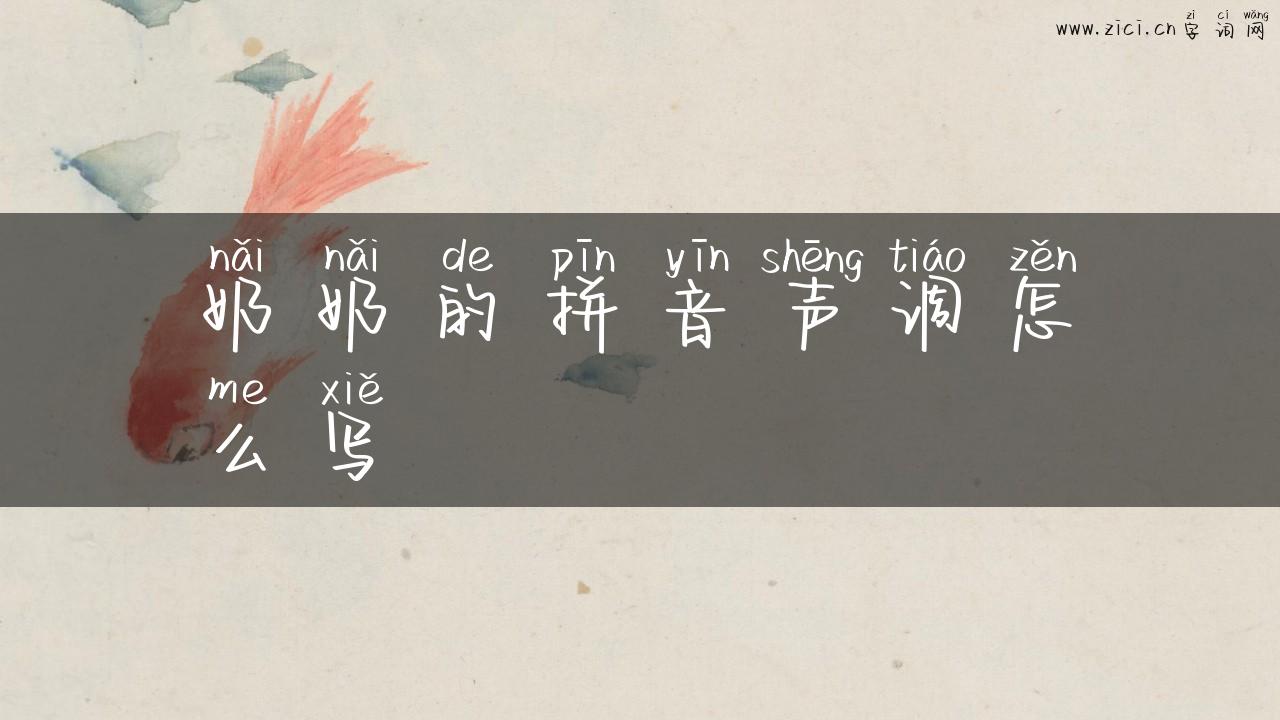 zì cí wǎng
www.zici.cn 字词网
nǎi nǎi de pīn yīn shēng tiáo zěn
奶奶的拼音声调怎
me xiě
么写